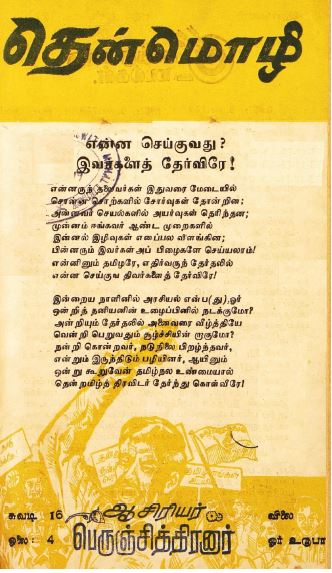 தென்மொழி
என்ன செய்குவது?
இவர்களைத் தேர்விரே!
என்னருந் தலைவர்கள் இதுவரை மேடையில்
சொன்ன சொற்களில் சோர்வுகள் தோன்றின;
அன்னவர் செயல்களில் அயர்வுகள் தெரிந்தன;
முன்னம் ஈங்கவர் ஆண்ட முறைகளில்
இன்னல் இழிவுகள் எனப்பல விளங்கின;
பின்னரும் இவர்கள்அப் பிழைகளே செய்யலாம்!
என்னினும் தமிழரே, எதிர்வருந் தேர்தலில்
என்ன செய்குவ திவர்களைத் தேர்விரே!
இன்றைய நாளினில் அரசியல் என்ப(து),ஓர்
ஒன்றித் தனியனின் உழைப்பினில் நடக்குமோ?
அன்றியும் தேர்தலில் அனைவரை வீழ்த்தியே
வென்றி பெறுவதும் சூழ்ச்சியின் றாகுமோ?
நன்றி கொன்றவர், நடுநிலை பிறழ்ந்தவர்,
என்றும் இருந்திடும் பழியினர், ஆயினும்
ஒன்று கூறுவேன் தமிழ்நல உண்மையால்
தென்றமிழ்த் திரவிடர் தேர்ந்து கொள்வீரே!
சுவடி 16
ஓலை: 4
ஆசிரியர்
பெருஞ்சித்திரனார்
விலை
ஓர் உரூபா